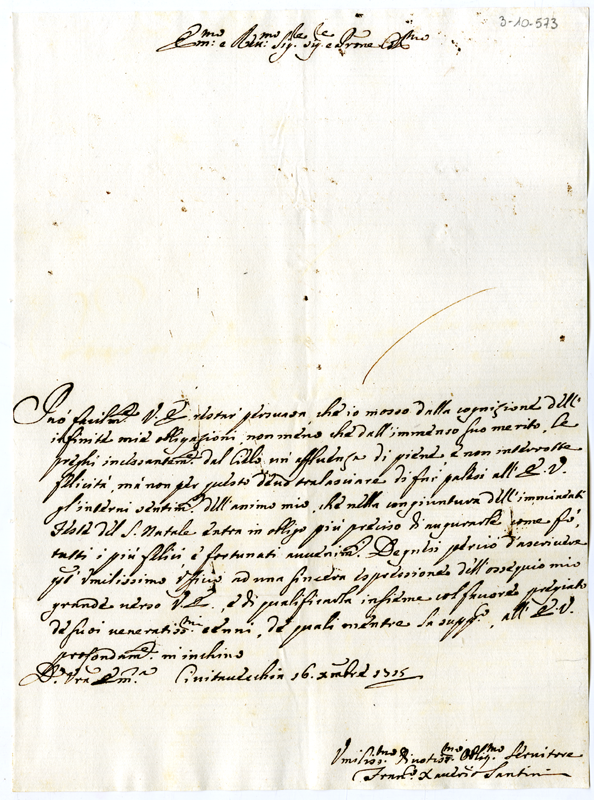 3-10-573
Em:mo e Rev:mo Sig.re Sig.re e Prone Col.mo
Può facilm.te V. E. restar persuasa che io mosso dalla cognizione dell'
infinite mie obligazioni, non meno che dall'immenso suo merito, le
preghi incessantem.te dal Cielo un'affluenza di piene e non interrotte
felicità, mà non per questo devo tralasciare di far palesi all'E. V.
gl'interni sentim.ti dell'animo mio, che nella congiuntura dell'imminenti
Feste del S. Natale entra in obligo più preciso di augurarle come fò,
tutti i più felici e fortunati avvenim.ti. Degnisi perciò d'ascrivere
q.to Umilissimo Ufficio ad una sincera espressione dell'ossequio mio
grande verso V. E., e di qualificarla insieme col favore pregiato
de suoi veneratiss:mi cenni, de quali mentre la supp.co, all'E. V.
profondam.te m'inchino
D. Vra Em.a Civitavechia 16. xmbre 1715
Umiliss:mo Divotiss:mo Oblig.mo Servitore
Fran.co Xaverio Santini